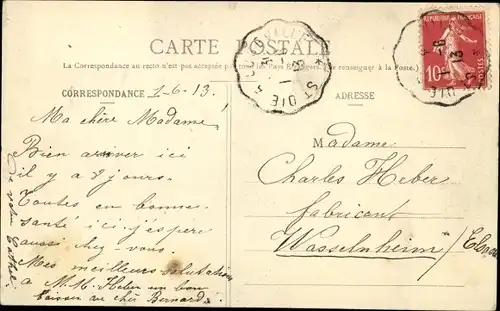 CARTE POSTALE
La Correspondance au recto n'est pas acceptée par tous les Pays Étrangers. (Se renseigner à la Poste.)
CORRESPONDANCE
ADRESSE
1-6-13.
Ma chère Madame!
Bien arriver ici
il y a 8 jours.
Toutes en bonne
santé ici, j'espère
aussi chez vous.
Mes meilleurs salutations
à M. H. Heber un bon
baiser au cher Bernard
De votre
Madame
Charles Heber
fabricant
Wasselnheim /Elsass
RÉPUBLIQUE FRANÇAISE
10c
POSTES
ST DIE